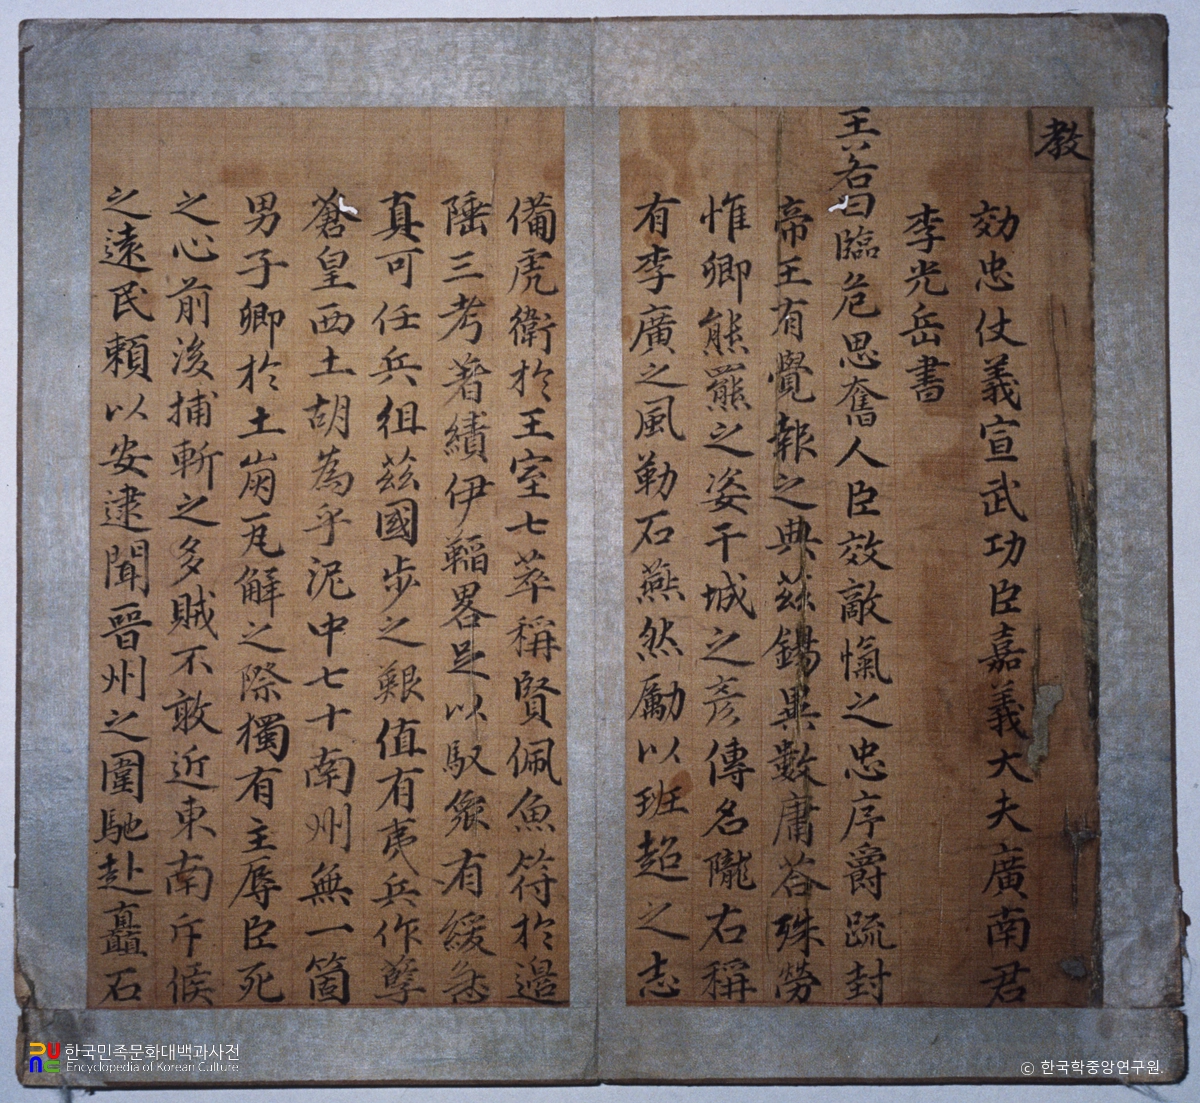 教
効忠仗義宣武功臣嘉義大夫廣南君
李光岳書
王若曰臨危思奮人臣效敵愾之忠序爵疏封
帝王有覺報之典玆錫異數庸荅殊勞
惟卿熊羆之姿干城之彦傳名隴右稱
有李廣之風勒石燕然勵以班超之志
備虎衛於王室七萃稱賢佩魚符於邊
陲三考著績伊韜畧足以馭衆有緩急
真可任兵徂玆國步之艱值有夷兵作孽
蒼皇西土胡為乎泥中七十南州無一箇
男子卿於土崩瓦解之際獨有主辱臣死
之心前後捕斬之多賊不敢近東南斥候
之遠民頼以安逮聞晉州之圍馳赴矗石
한국민족문화대백과사전
Encyclopedia of Korean Culture
© 한국학중앙연구원.